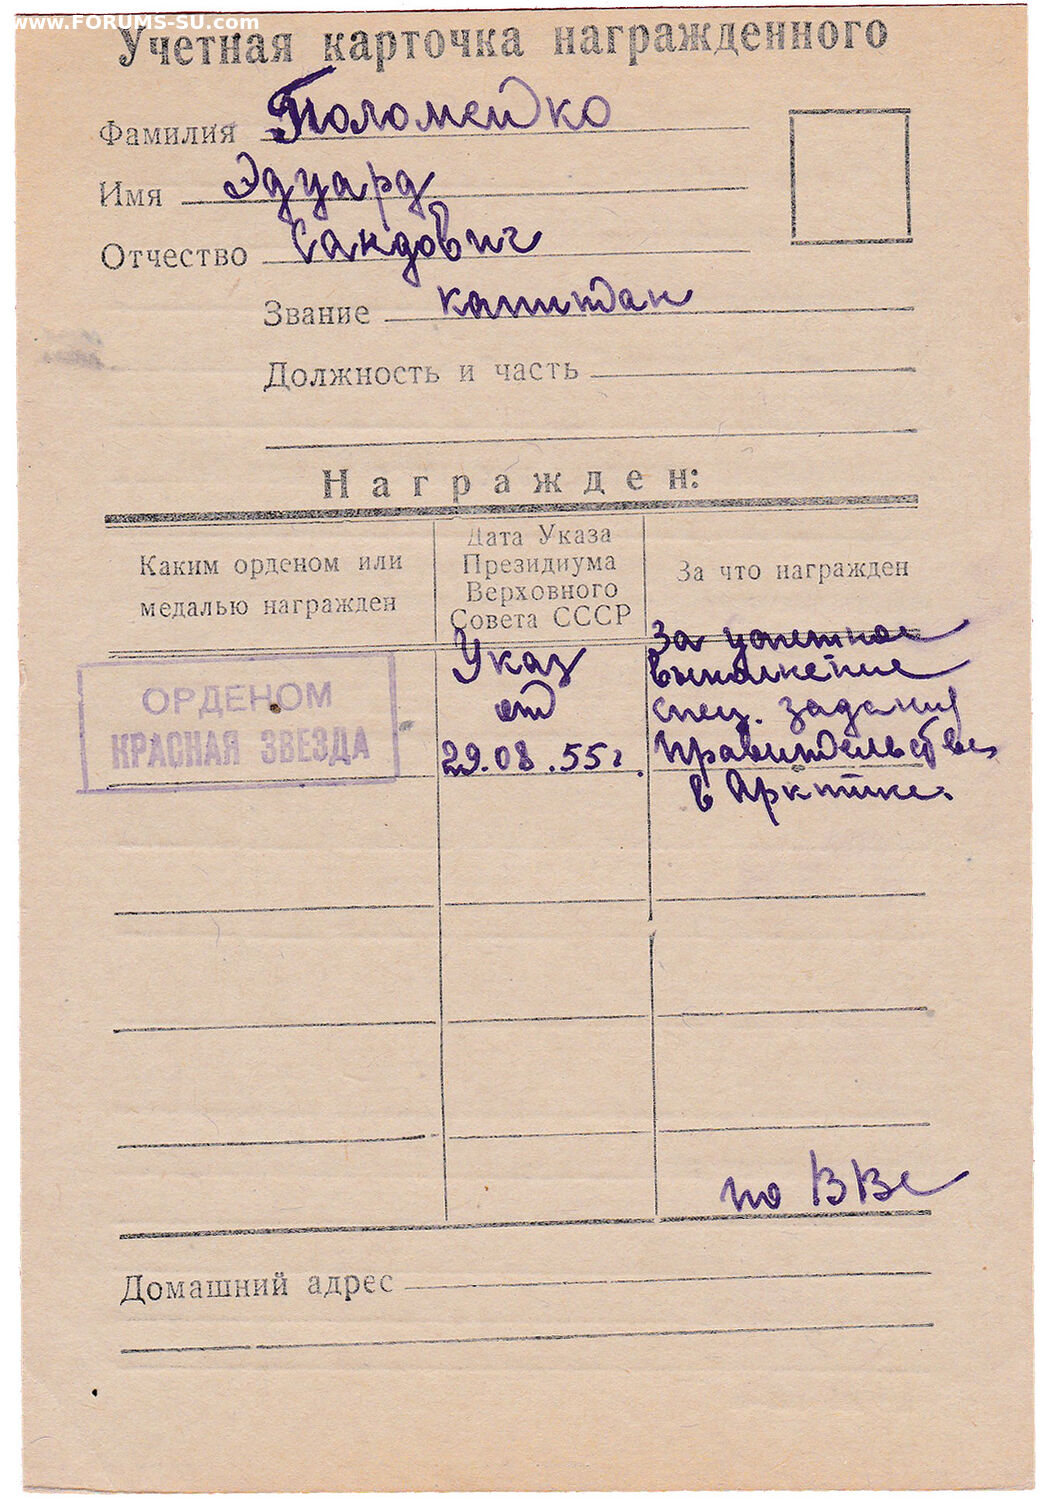 www.FORUMS-SU.com
Учетная карточка награжденного
Фамилия Поломейко
Имя Эдуард
Отчество Сандович
Звание капитан
Должность и часть
Награжден:
Каким орденом или медалью награжден
Дата Указа Президиума Верховного Совета СССР
За что награжден
ОРДЕНОМ
КРАСНАЯ ЗВЕЗДА
Указ
от
29.08.55г.
За успешное
выполнение
спец. задания
Правительства
в Арктике.
по ВВС
Домашний адрес